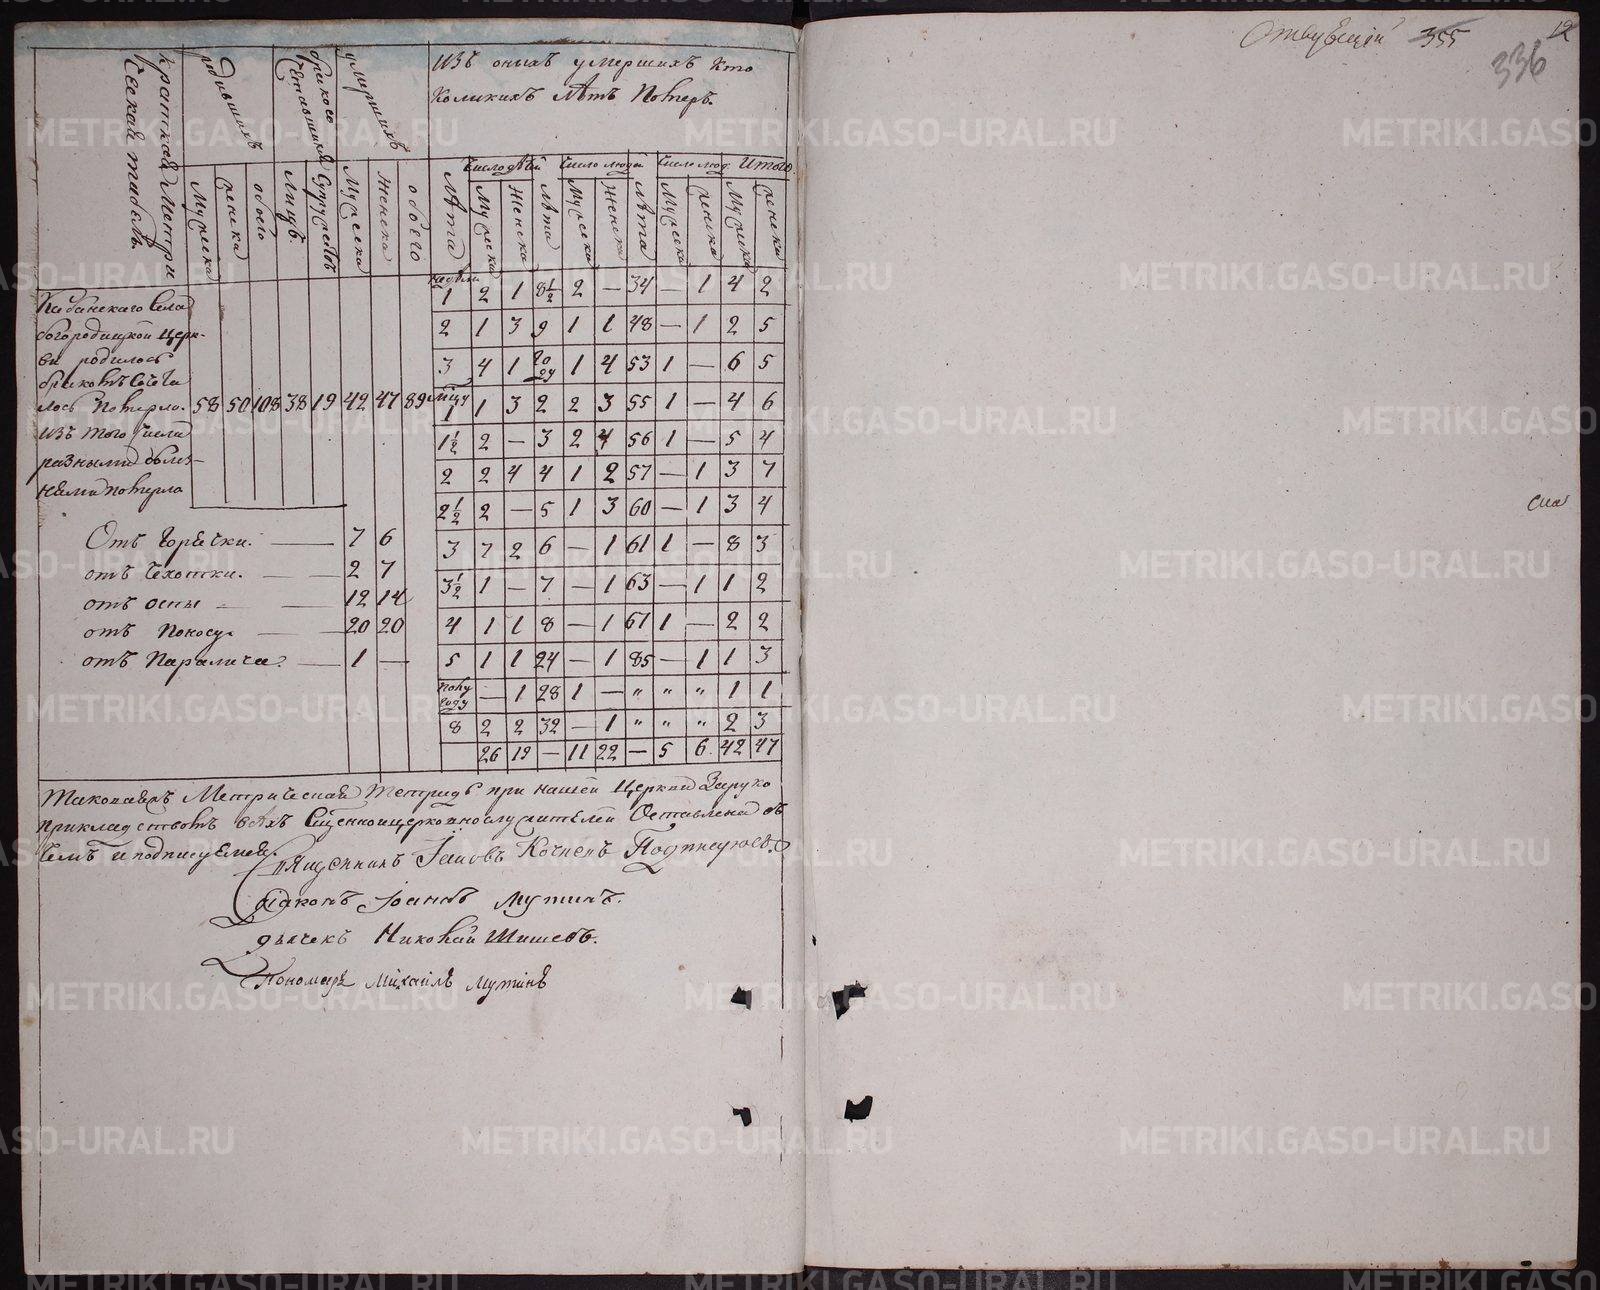 краткая Метри
ческая табель.
родившихъ
бракосо
четавшихся
умершихъ
Изъ оныхъ умершихъ кто
коликихъ лѣтъ померъ.
Мужеска
женска
обоего
Лицъ.
Супружествъ
Мужеска
Женска
обоего
Лѣта
Число людей
Число людей
Число люд
Итого.
Мужеска
Женска
Лѣта
Мужеска
Женска
Лѣта
Мужеска
женска
Мужеска
женска
Кабанскаго села
богородицкой церк-
ви родилось
бракомъ сочета
лось померло.
изъ того числа
разными болез-
нями померло
58 50 108 38 19 42 47 89
Отъ горячки. 7 6
отъ чехотки. 2 7
отъ оспы 12 14
отъ поносу. 20 20
отъ паралича. 1 —
недѣли
1 2 1 8½ 2 — 34 — 1 4 2
2 1 3 9 1 1 48 — 1 2 5
3 4 1 году 1 4 53 1 — 6 5
м҃цу
1 1 3 2 2 3 55 1 — 4 6
1½ 2 — 3 2 4 56 1 — 5 4
2 2 4 4 1 2 57 — 1 3 7
2½ 2 — 5 1 3 60 — 1 3 4
3 7 2 6 — 1 61 1 — 8 3
3½ 1 — 7 — 1 63 — 1 1 2
4 1 1 8 — 1 67 1 — 2 2
5 1 1 24 — 1 85 — 1 1 3
полу
году — 1 28 1 — " " " 1 1
8 2 2 32 — 1 " " " 2 3
26 19 — 11 22 — 5 6 42 47
Таковаяжъ Метрическая тетрадь при нашей церкви Заруко
прикладствомъ всѣхъ Сщенноицерковнослужителей Оставлена въ
чемъ и подписуемся.
Священникъ Іаковъ Кочневъ Подписуюсь.
диаконъ Іоаннъ Мутинъ.
дьячекъ Николай Шишевъ.
Пономарь Михаилъ Мутинъ
355
12
336
METRIKI.GASO-URAL.RU